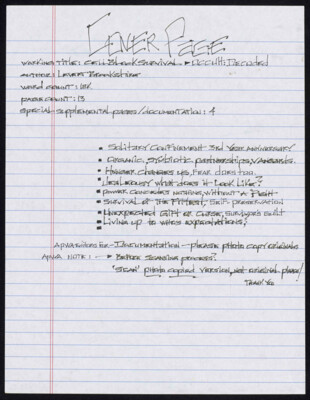 Cover Page
Working Title: Cell Block Survival ▸ Decoded
Author:
Word Count:
Page Count: 13
Special supplemental pages/documentation: 4
▪ Solitary Confinement 3rd Year Anniversary
▪ Organic, Symbiotic partnerships,
▪ Hunger changes us, fear does too.
▪ what does it look like?
▪ Power concedes nothing without a fight
▪ Survival of the Fittest, self preservation
▪ Unexpected gift or curse, survivors guilt
▪ Living up to who's expectations?
for - Documentation - please photo copy originals
Note: - ▸ Before scanning process?
"Scan" photo copied version, not original pages!
Thank You